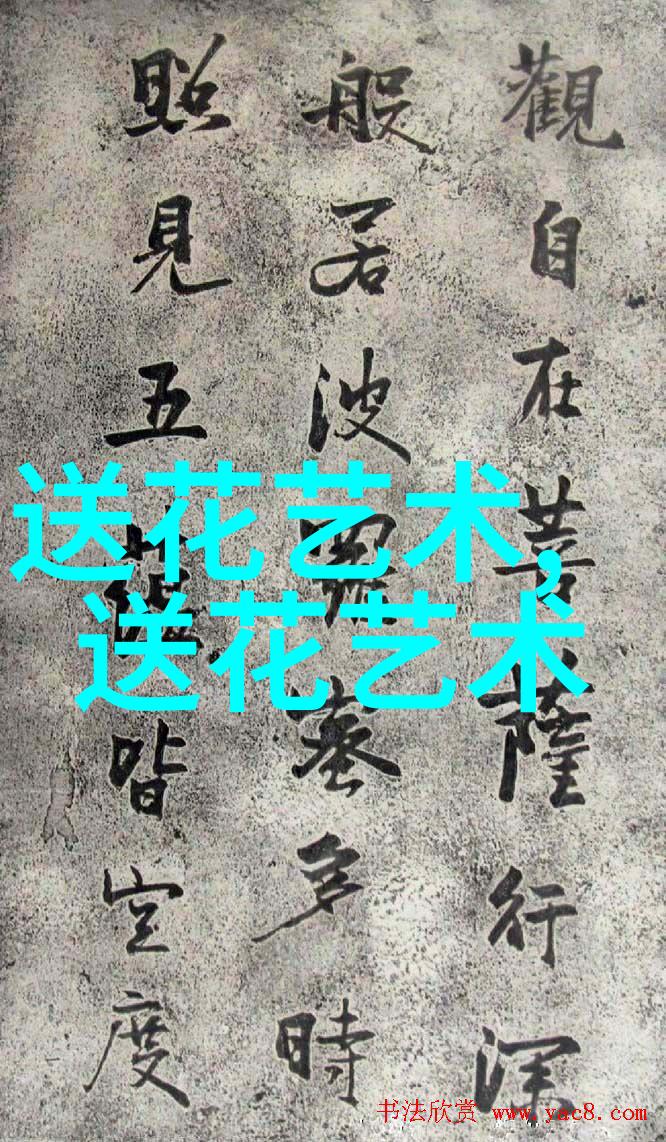 觀自在菩薩行深
般若波羅蜜多時
照見五蘊皆空度
送花艺术,
送花艺术
书法欣赏 www.yac8.com